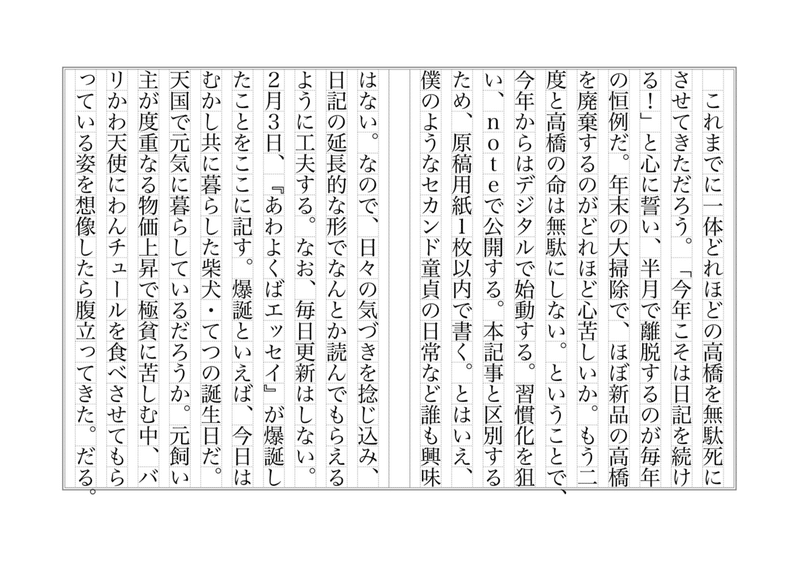 これまでに一体どれほどの高橋を無駄死に
させてきただろう。「今年こそは日記を続け
る！」と心に誓い、半月で離脱するのが毎年
の恒例だ。年末の大掃除で、ほぼ新品の高橋
を廃棄するのがどれほど心苦しいか。もう二
度と高橋の命は無駄にしない。ということで、
今年からはデジタルで始動する。習慣化を狙
い、noteで公開する。本記事と区別する
ため、原稿用紙1枚以内で書く。とはいえ、
僕のようなセカンド童貞の日常など誰も興味
はない。なので、日々の気づきを捻じ込み、
日記の延長的な形でなんとか読んでもらえる
ように工夫する。なお、毎日更新はしない。
2月3日、『あわよくばエッセイ』が爆誕し
たことをここに記す。爆誕といえば、今日は
むかし共に暮らした柴犬・てつの誕生日だ。
天国で元気に暮らしているだろうか。元飼い
主が度重なる物価上昇で極貧に苦しむ中、バ
リかわ天使にわんチュールを食べさせてもら
っている姿を想像したら腹立ってきた。だる。